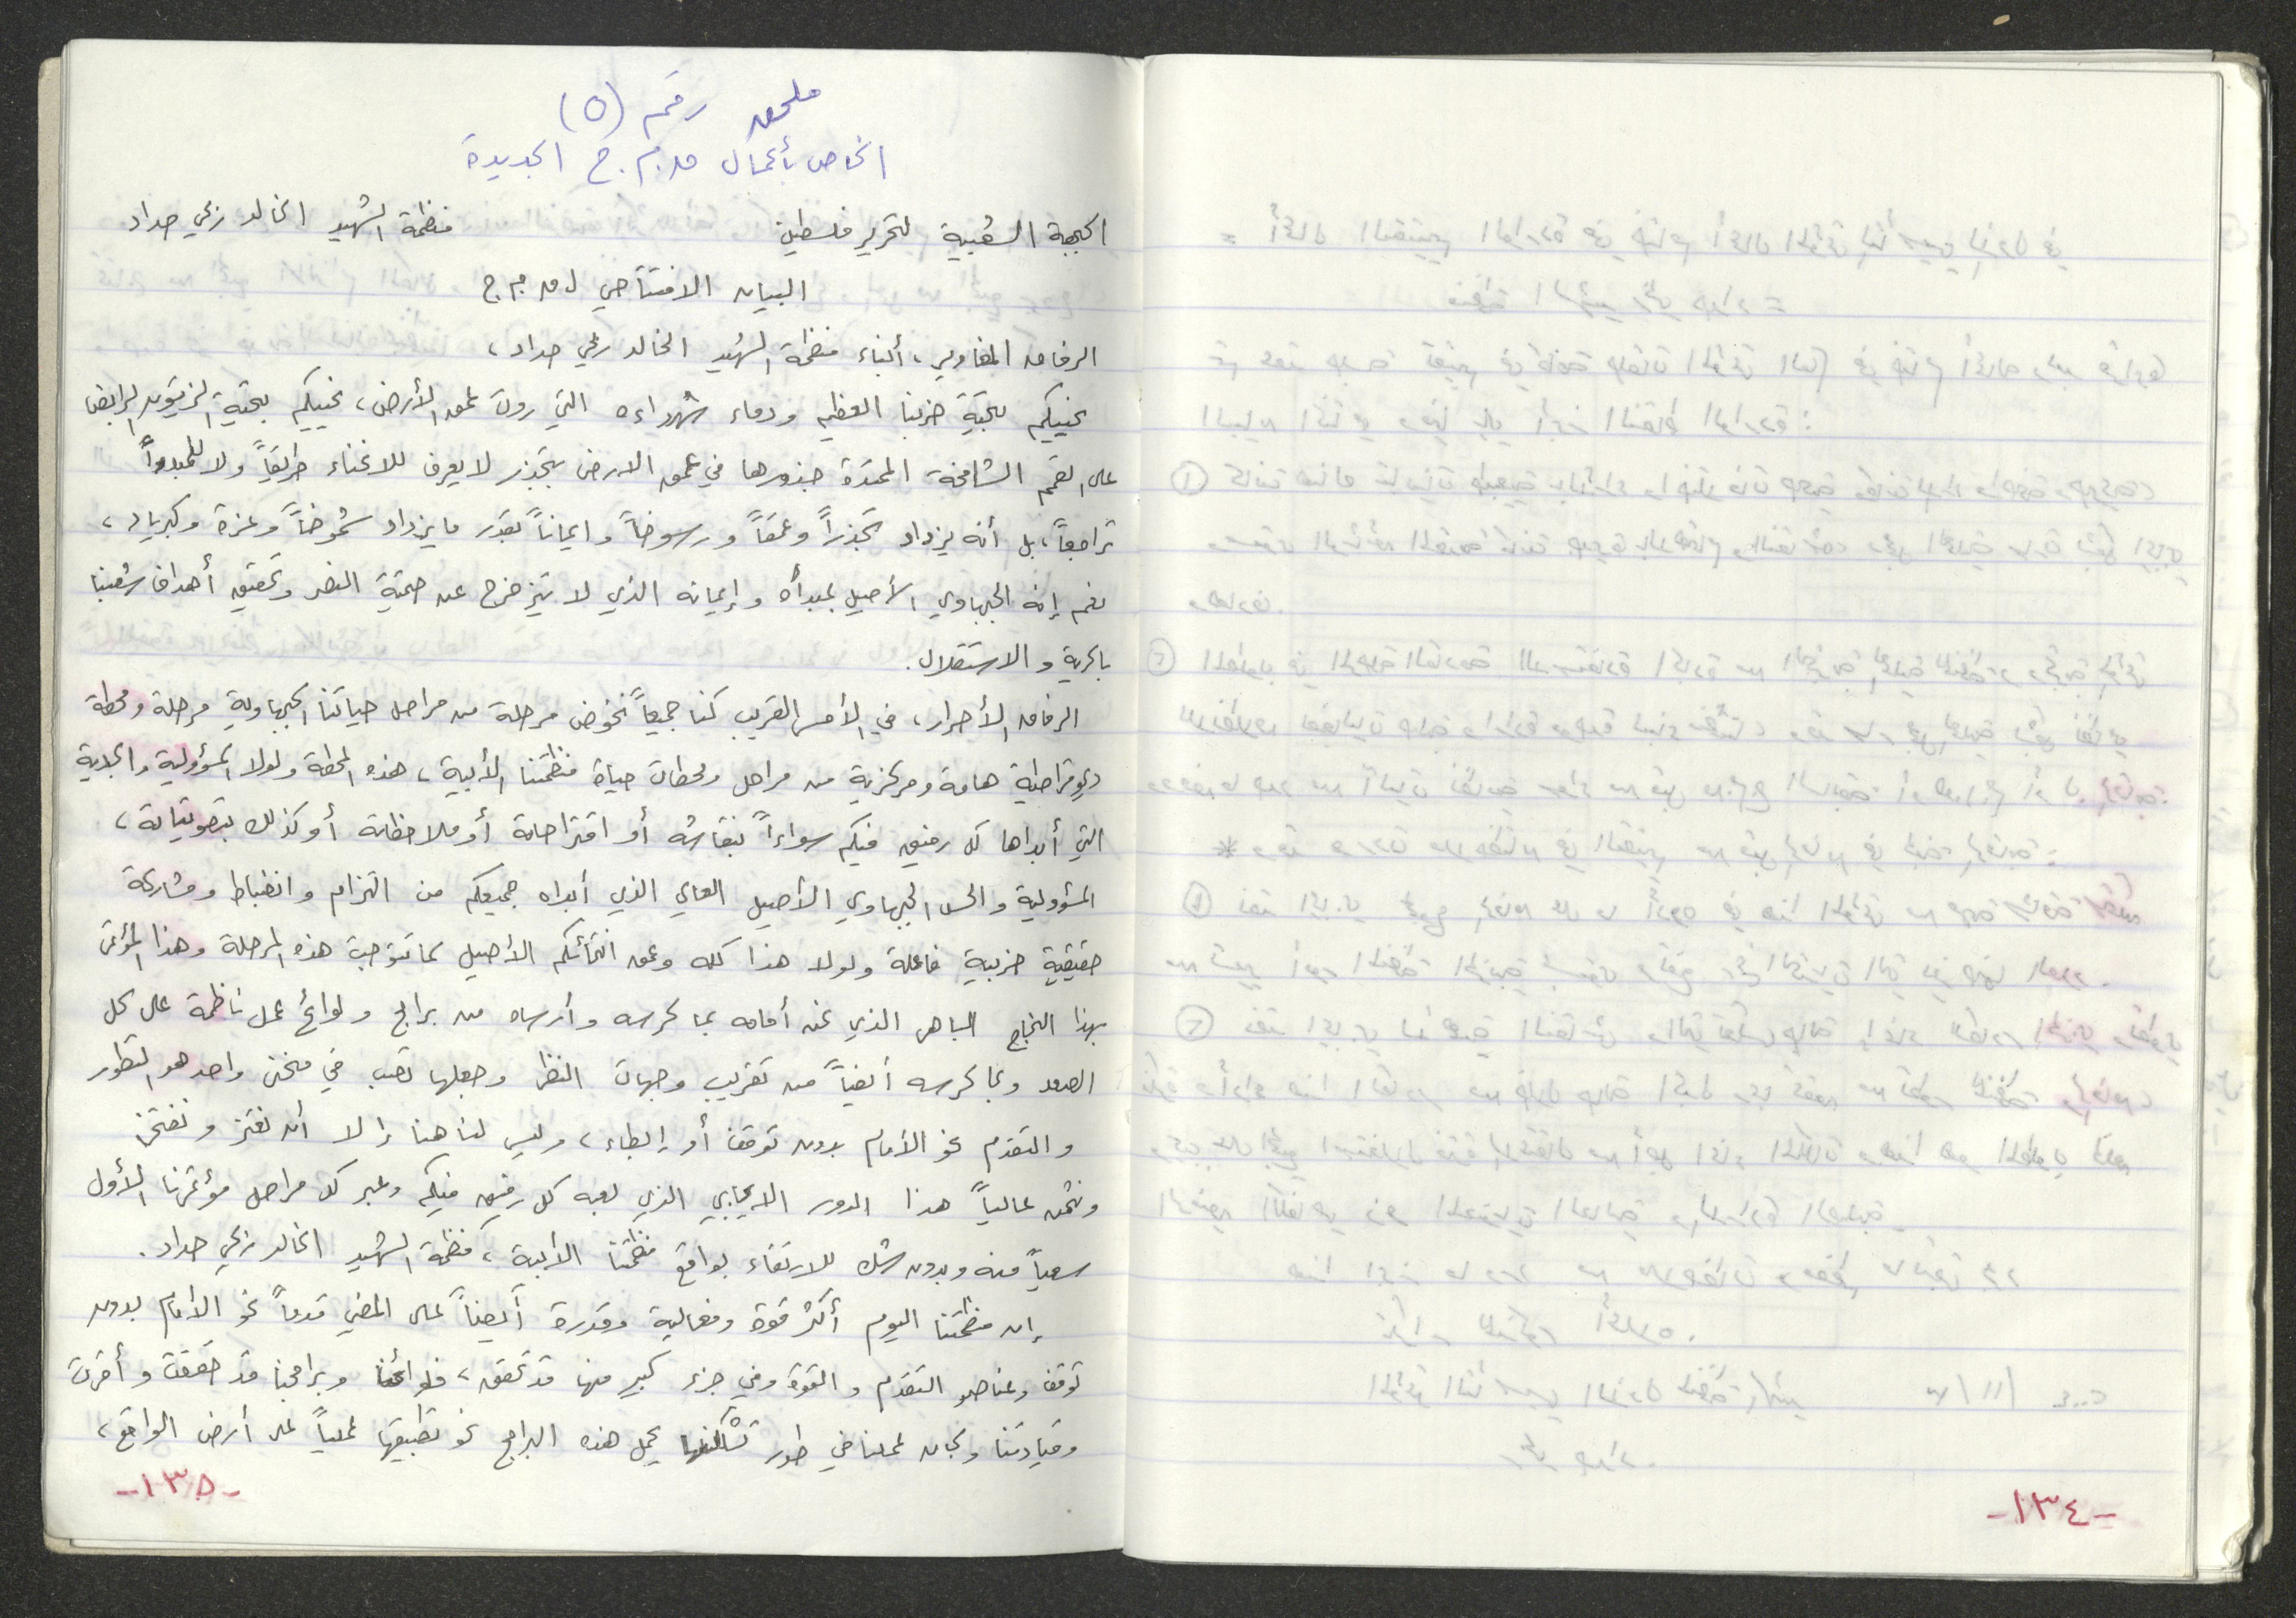 ملحق رقم (٥)
الخاص بأعمال م.م.ج الجديدة
الجبهة الشعبية لتحرير فلسطين منظمة الشهيد الخالد زكي حداد
البيان الافتتاحي ل م م ج
الرفاق المغاوير، أبناء منظمة الشهيد الخالد زكي حداد،
نحييكم بتحية حزبنا العظيم ودماء شهداءه التي روت عمق الأرض، نحييكم بتحية الزيتون الرابض
على القمم الشامخة، الممتدة جذورها في عمق الارض بتجذر لا يعرف للانحناء طريقاً ولا للمبدأ
تراجعاً، بل أنه يزداد تجذراً وعمقاً ورسوخاً وايماناً بقدر ما يزداد شموخاً وعزة وكبرياء،
نعم إنه الجبهاوي الأصيل بمبدأه وإيمانه الذي لا يتزحزح عن حتمية النصر وتحقيق أهداف شعبنا
بالحرية والاستقلال.
الرفاق الأحرار، في الأمس القريب كنا جميعاً نخوض مرحلة من مراحل حياتنا الجبهاوية مرحلة ومحطة
ديموقراطية هامة ومركزية من مراحل ومحطات حياة منظمتنا الأبية، هذه المحطة ولولا المسؤولية والجدية
التي أبداها كل رفيق فيكم سواءاً بنقاشه أو اقتراحاته أو ملاحظاته أو كذلك بتصويتاته،
المسؤولية والحس الجبهاوي الأصيل العالي الذي أبداه جميعكم من التزام وانضباط ومشاركة
حقيقية حزبية فاعلة ولولا هذا كله وعمق انتمائكم الأصيل لما تتوجت هذه المرحلة وهذا المؤتمر
بهذا النجاح الباهر الذي نحن أمامه بما كرسه وأرساه من برامج ولوائح عمل ناظمة على كل
الصعد وبما كرسه أيضاً من تقريب وجهات النظر وجعلها تصب في منحنى واحد هو التطور
والتقدم نحو الأمام بدون توقف أو إبطاء، وليس لنا هنا إلا أن نعتز ونفتخر
ونثمن عالياً هذا الدور الايجابي الذي لعبه كل رفيق فيكم وعبر كل مراحل مؤتمرنا الأول
سعياً منه وبدون شك للارتقاء بواقع منظمتنا الأبية، منظمة الشهيد الخالد زكي حداد.
إن منظمتنا اليوم أكثر قوة وفعالية وقدرة أيضاً على المضي قدماً نحو الأمام بدون
توقف وعناصر التقدم والقوة وفي جزء كبير منها قد تحقق، فلوائحنا وبرامجنا قد حققت وأقرت
وقيادتنا ولجان عملنا في طور تشكلها بحمل هذه البرامج نحو تطبيقها عملياً على أرض الواقع،
-١٣٥-
-١٣٤-